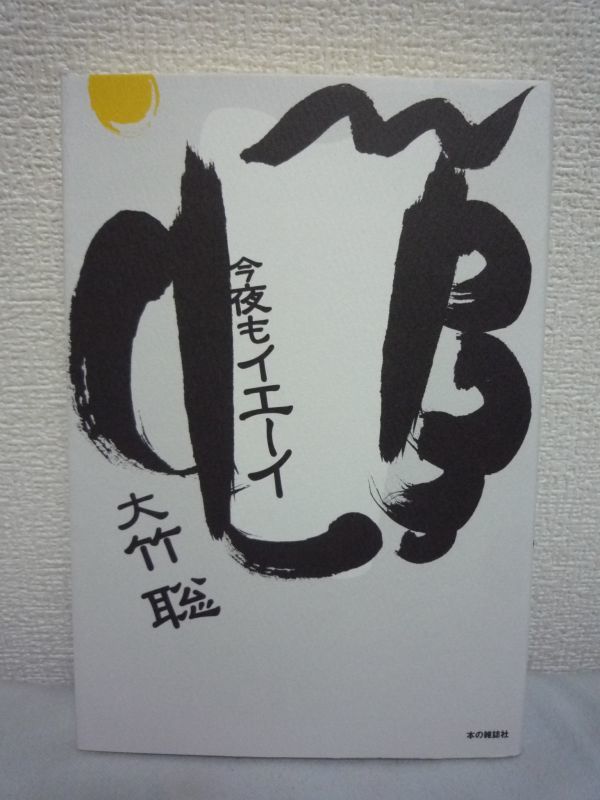 今夜もイエーイ
大竹 聡
本の雑誌社